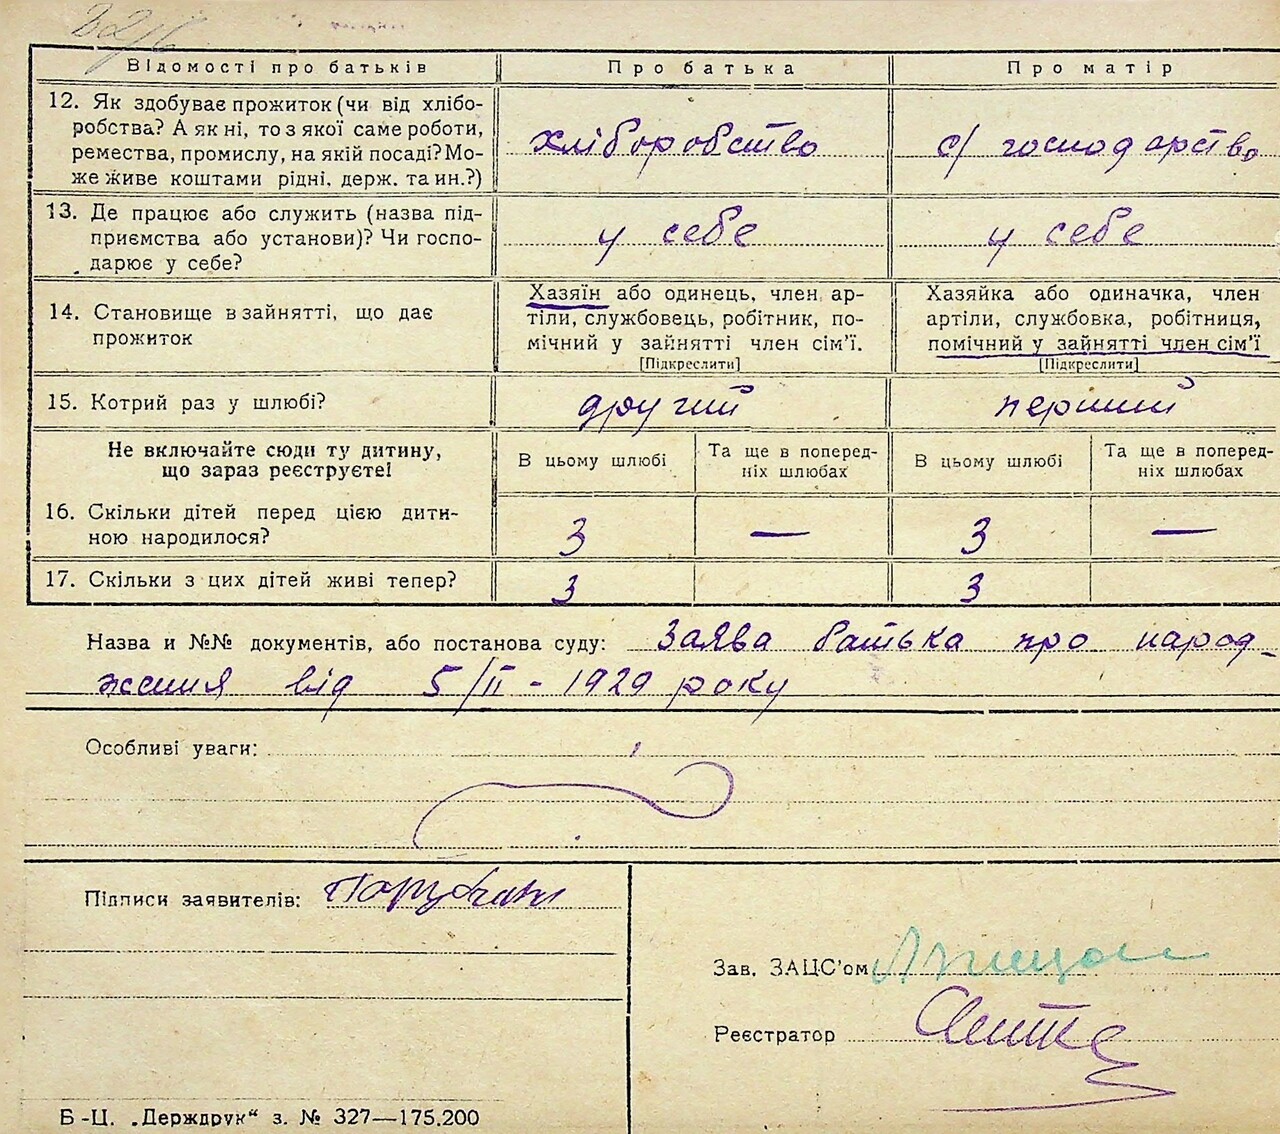 Відомості про батьків Про батька Про матір
12. Як здобуває прожиток (чи від хлібо-
робства? А як ні, то з якої саме роботи,
ремества, промислу, на якій посаді? Мо-
же живе коштами рідні, держ. та ин.?)
хліборобство с/ господарство
13. Де працює або служить (назва під-
приємства або установи)? Чи госпо-
дарює у себе?
у себе у себе
14. Становище в зайнятті, що дає
прожиток
Хазяїн або одинець, член ар-
тіли, службовець, робітник, по-
мічний у зайнятті член сім'ї.
[Підкреслити]
Хазяйка або одиначка, член
артіли, службовка, робітниця,
помічний у зайнятті член сім'ї
[Підкреслити]
15. Котрий раз у шлюбі? другий перший
Не включайте сюди ту дитину,
що зараз реєструєте!
В цьому шлюбі
Та ще в поперед-
ніх шлюбах
В цьому шлюбі
Та ще в поперед-
ніх шлюбах
16. Скільки дітей перед цією дити-
ною народилося?
3 — 3 —
17. Скільки з цих дітей живі тепер? 3 3
Назва и №№ документів, або постанова суду: Заява батька про народ-
ження від 5/II - 1929 року
Особливі уваги:
Підписи заявителів:
Зав. ЗАЦС'ом
Реєстратор
Б-Ц. „Держдрук“ з. № 327—175.200